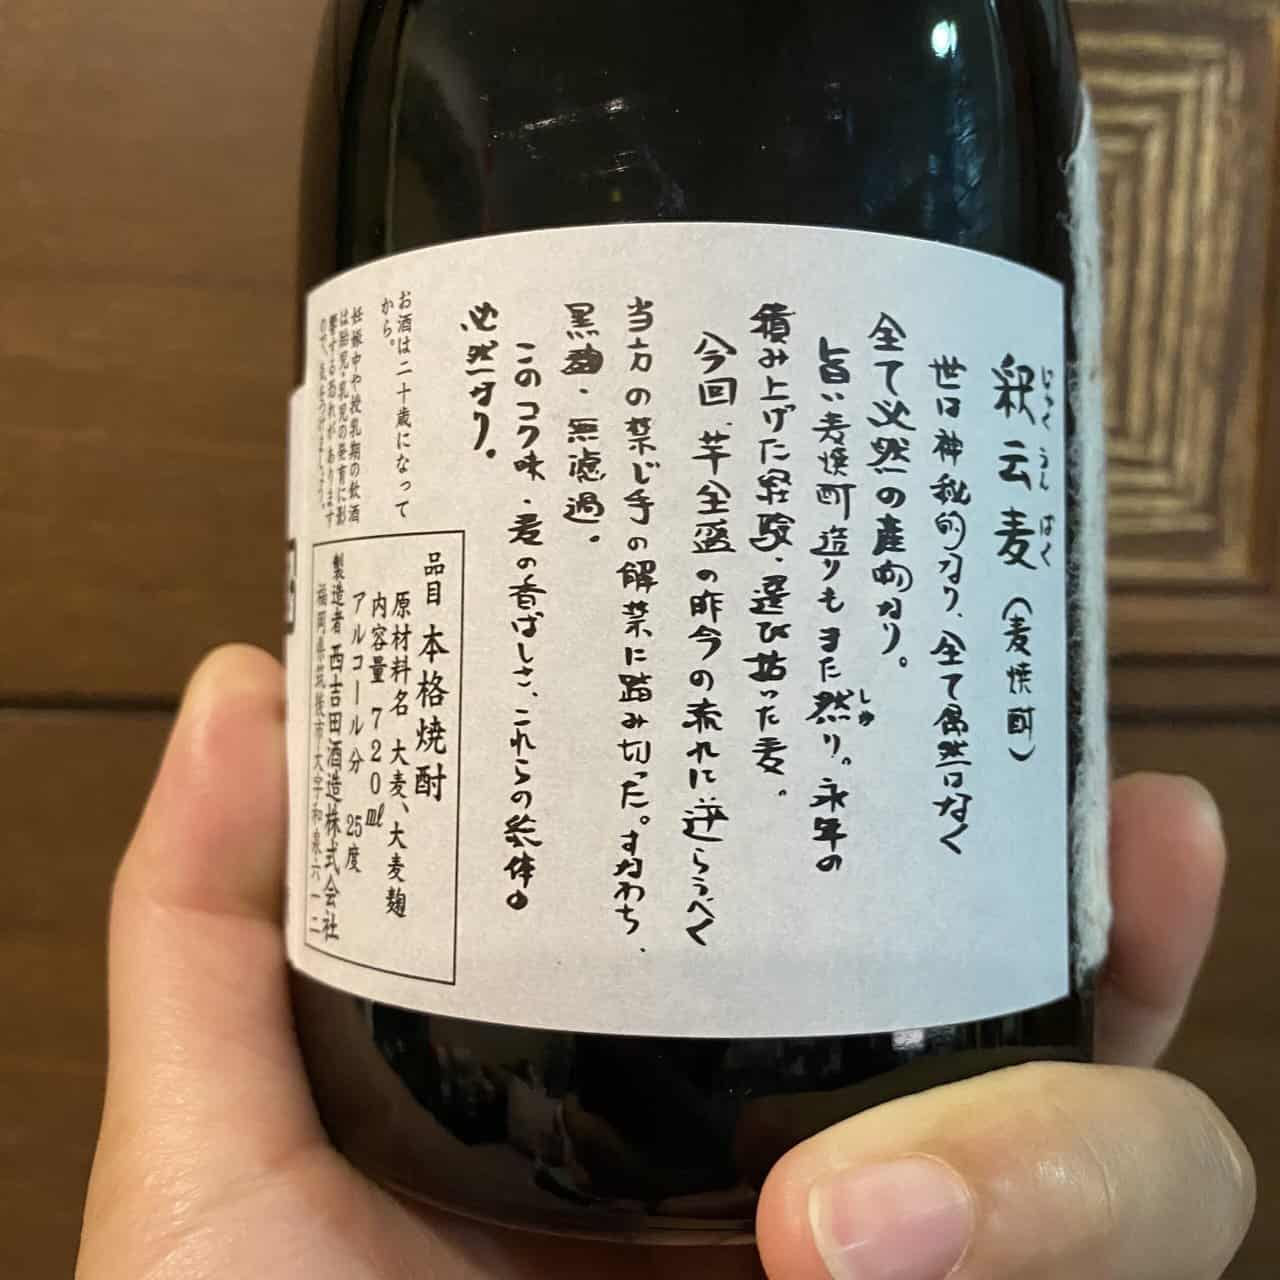 釈云麦（麦焼酎）
じゃくうんばく
世は神秘的なり、全て偶然はなく
全て必然の産物なり。
旨い麦焼酎造りもまた然り。永年の
しか
積み上げた経験・選び拔った麦。
今回、芋全盛の昨今の流れに逆らうべく
当方の禁じ手の解禁に踏み切った。すなわち、
黒麹・無濾過。
このコク味・麦の香ばしさ、これらの総体の
必然なり。
お酒は二十歳になって
から。
妊娠中や授乳期の飲酒
は胎児・乳児の発育に影
響する恐れがあります
ので、気をつけましょう。
品目 本格焼酎
原材料名 大麦、大麦麹
内容量 720㎖
アルコール分 25度
製造者 西吉田酒造株式会社
福岡県筑後市大字和泉六一二